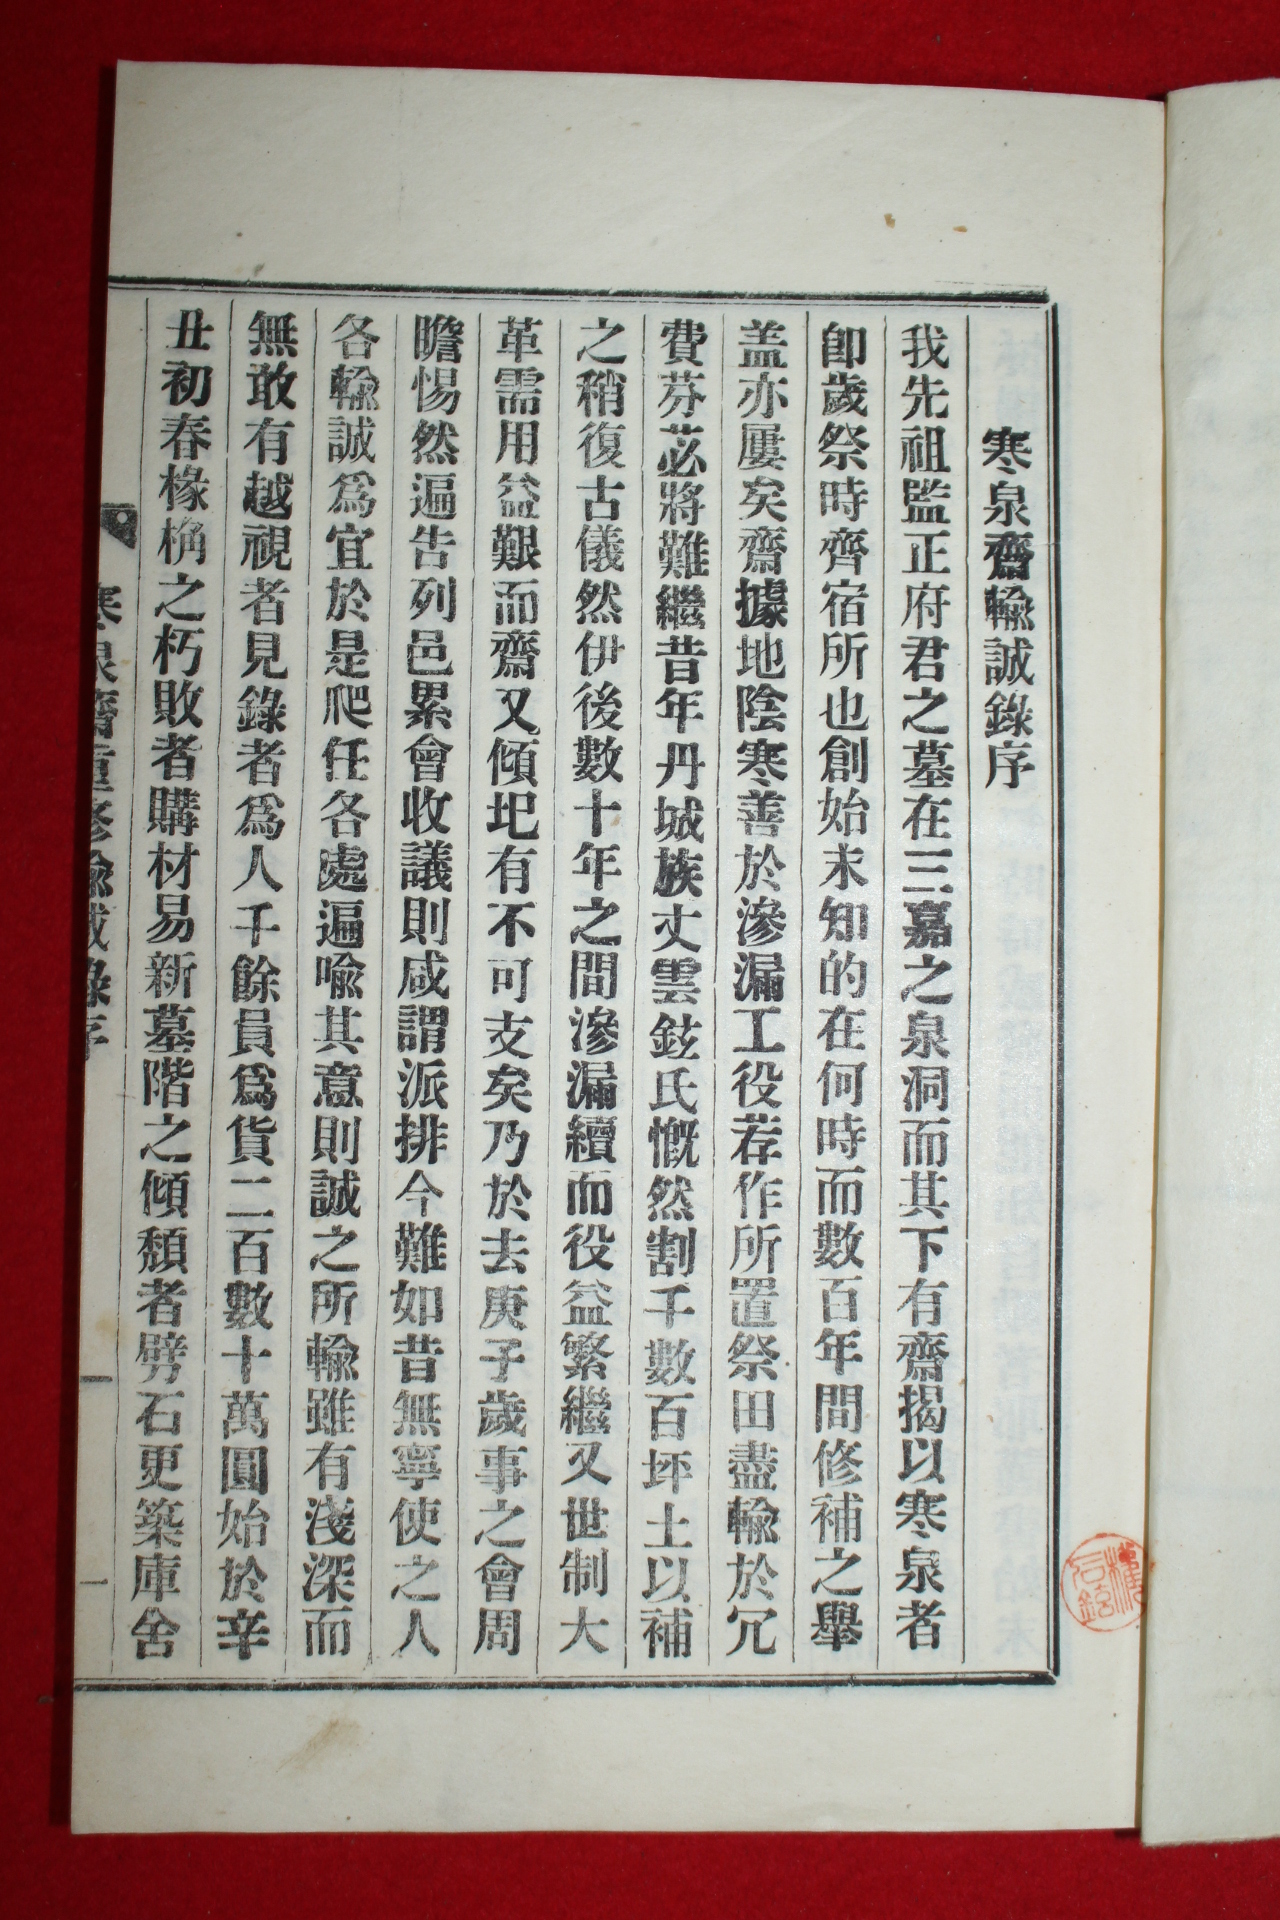 寒泉齋輸誠錄序
我先祖監正府君之墓在三嘉之泉洞而其下有齋揭以寒泉者
卽歲祭時齊宿所也創始未知的在何時而數百年間修補之擧
盖亦屢矣齋據地陰寒善於滲漏工役荐作所置祭田盡輸於冗
費芬苾將難繼昔年丹城族丈雲鉉氏慨然割千數百坪土以補
之稍復古儀然伊後數十年之間滲漏續而役益繁繼又世制大
革需用益艱而齋又傾圮有不可支矣乃於去庚子歲事之會周
瞻惕然遍告列邑累會收議則咸謂派排今難如昔無寧使之人
各輸誠爲宜於是爬任各處遍喩其意則誠之所輸雖有淺深而
無敢有越視者見錄者爲人千餘員爲貨二百數十萬圓始於辛
丑初春椽桷之朽敗者購材易新墓階之傾頹者劈石更築庫舍
寒泉齋重修輸誠錄序
一
一